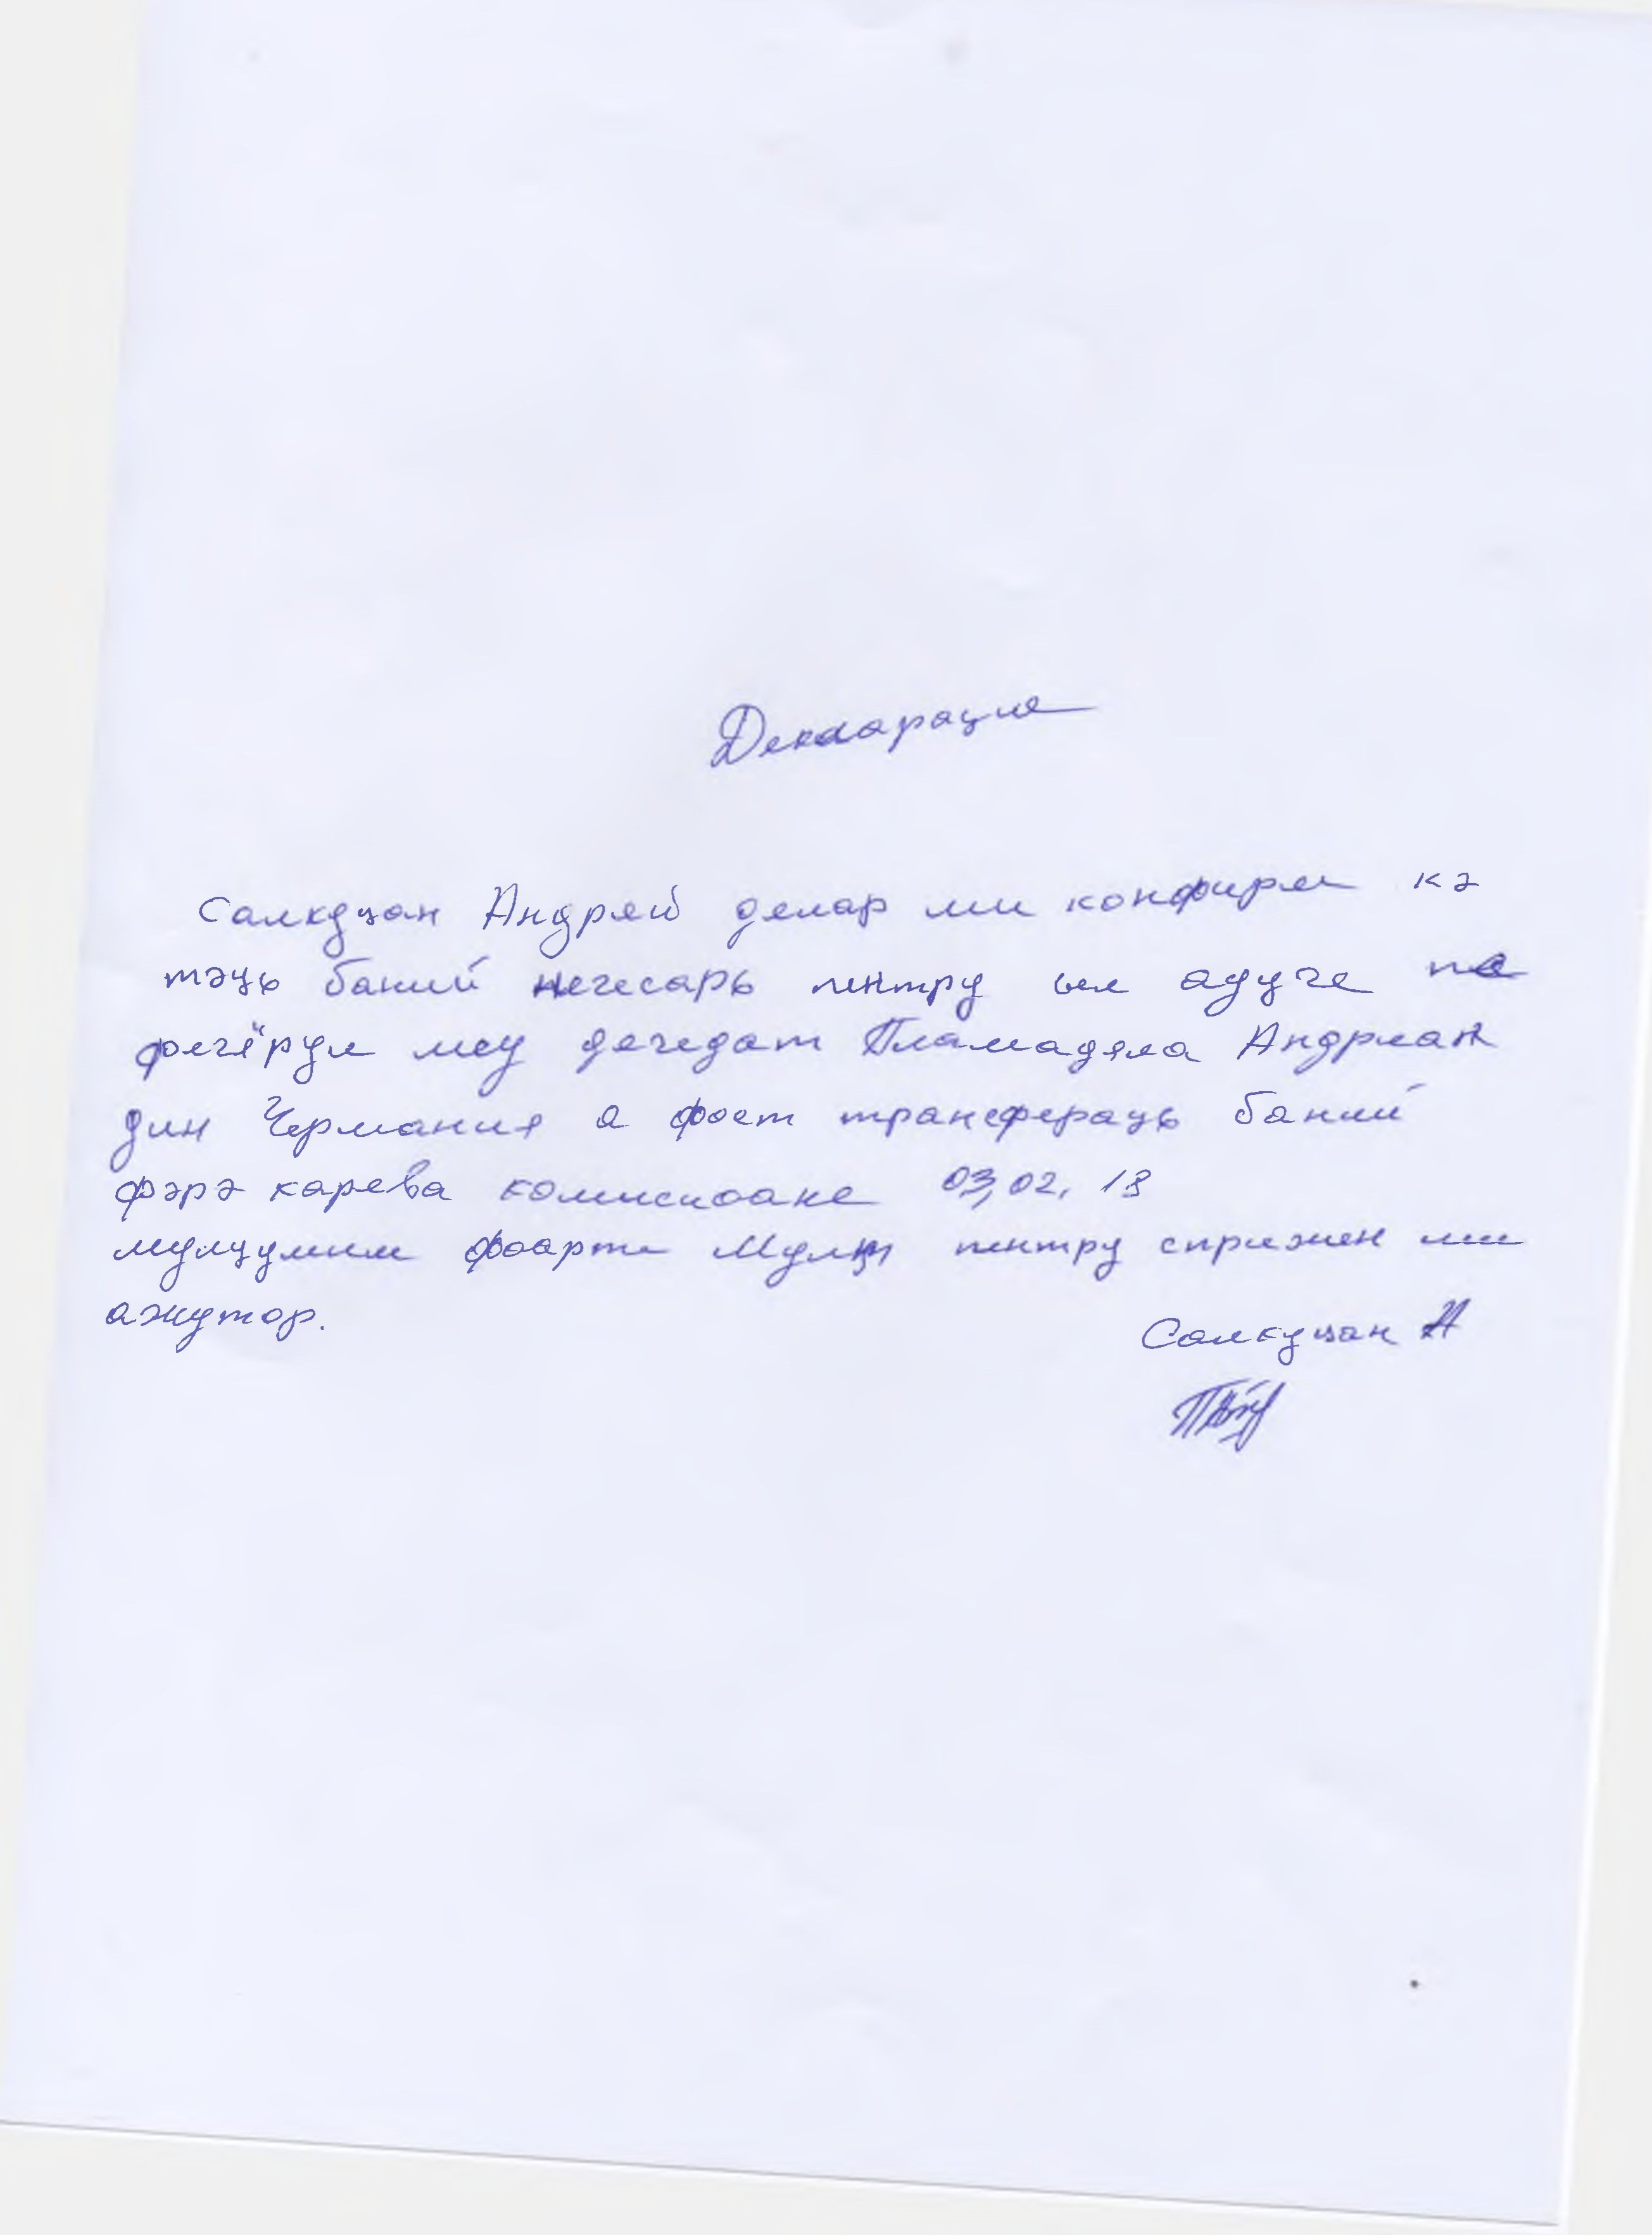 Декларацие
Салкуцан Андрей делар ши конфирм кэ
тэць баний нечесарь пентру ыл адуче пе
фечёрул меу дечедат Пламадяла Андриан
дин Чермания а фост трансфераць баний
фэрэ карева комисиоане 03,02,13
мулцумим фоарте Мулт пентру сприжен ши
ажутор.
Салкуцан А